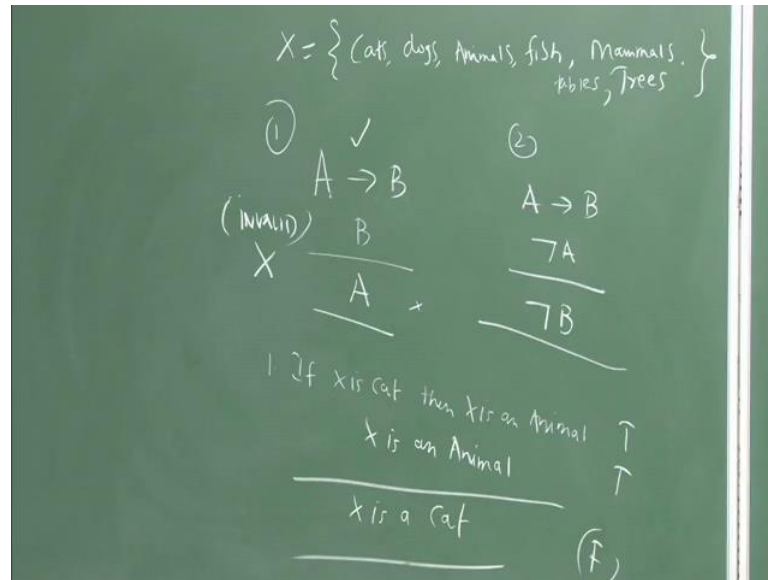 X = { Cats, dogs, Animals, fish, Mammals.
tables, Trees }
① ✓
A → B
(INVALID) B
X
A ×
②
A → B
¬A
¬B
1. If X is Cat then X is an Animal T
X is an Animal T
X is a Cat (F)